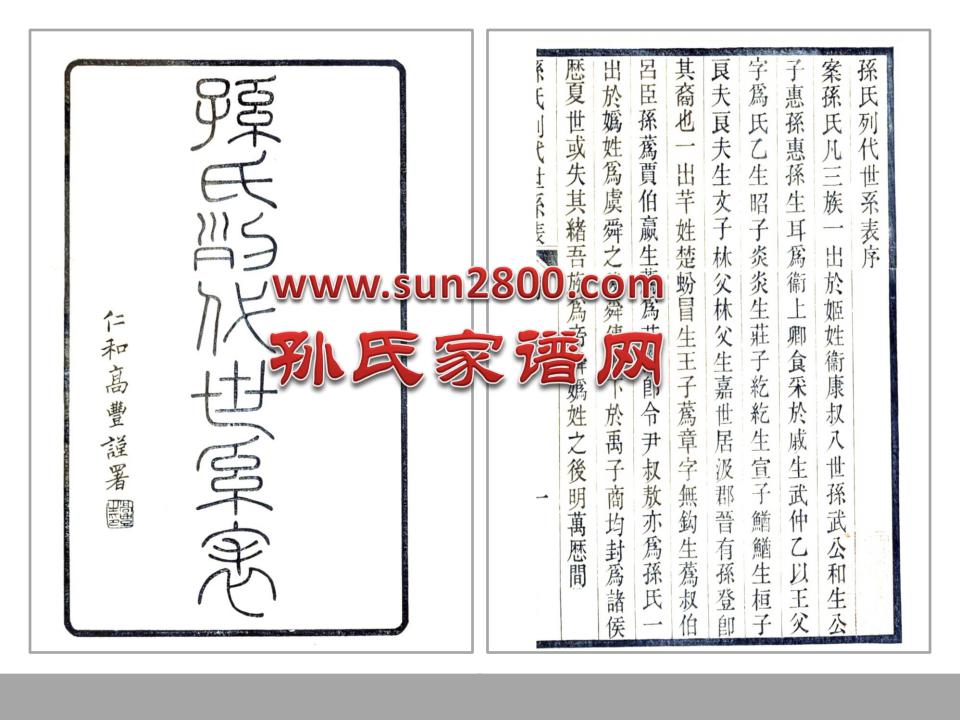 孫氏列代世系表
仁和高豐謹署
www.sun2800.com
孙氏家谱网
孫氏列代世系表序
案孫氏凡三族一出於姬姓衞康叔八世孫武公和生公
子惠孫惠孫生耳爲衞上卿食采於戚生武仲乙以王父
字爲氏乙生昭子炎炎生莊子紇紇生宣子鰌鰌生桓子
良夫良夫生文子林父林父生嘉世居汲郡晉有孫登卽
其裔也一出芊姓楚蚡冒生王子蔿章字無鈎生蔿叔伯
呂臣孫蔿賈伯嬴生蔿爲卽令尹叔敖亦爲孫氏一
出於嬀姓爲虞舜之舜於禹子商均封爲諸侯
歴夏世或失其緒吾族爲帝舜嬀姓之後明萬歴間
孫氏列代世系表
一